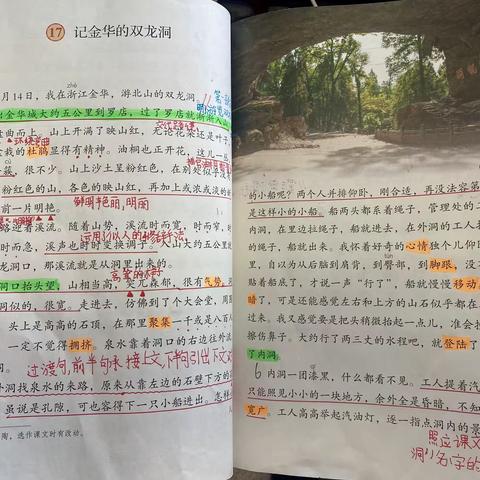 17 记金华的双龙洞
月14日，我在浙江金华，游北山的双龙洞。
出金华城大约五公里到罗店，过了罗店就渐渐入山
盘曲而上。山上开满了映山红，无论花朵还是叶子
环绕弯曲
栽的杜鹃显得有精神。油桐也正开花，这儿一
簇，很不少。山上沙土呈粉红色，在别处似乎没
粉红色的山，各色的映山红，再加上或浓或淡的新
前一片明艳。
鲜明艳丽，明丽
路迎着溪流。随着山势，溪流时而宽，时而窄，时
时而急，溪声也时时变换调子。
大约五公里
龙洞口，那溪流就是从洞里出来的。
洞口抬头望，山相当高，突兀森郁，很有气势。
洞似的，很宽。走进去，仿佛到了个大会堂，周
头上是高高的石顶，在那里聚集一千或是八百人
一定不觉得拥挤。泉水靠着洞口的右边往外流
过渡句，前半句承接上文，下半句引出下文
洞找泉水的来路，原来从靠左边的石壁下方的
虽说是孔隙，可也容得下一只小船进出。怎样
陶，选作课文时有改动。
的小船呢？两个人并排仰卧，刚合适，再没法容第
是这样小的小船。船两头都系着绳子，管理处的
内洞，在里边拉绳子，船就进去，在外洞的工人
的绳子，船就出来。我怀着好奇的心情独个儿仰卧
里，自以为从后脑到肩背，到臀部，到脚跟，没
贴着船底了，才说一声“行了”，船就慢慢移动
暗了，可是还能感觉左右和上方的山石似乎都在
过来。我又感觉要是把头稍微抬起一点儿，准会
擦伤鼻子。大约行了两三丈的水程吧，就登陆了
了内洞。
6 内洞一团漆黑，什么都看不见。工人提着汽
只能照见小小的一块地方，余外全是昏暗，不知
宽广。工人高高举起汽油灯，逐一指点洞内的景
照应课文
洞名字的